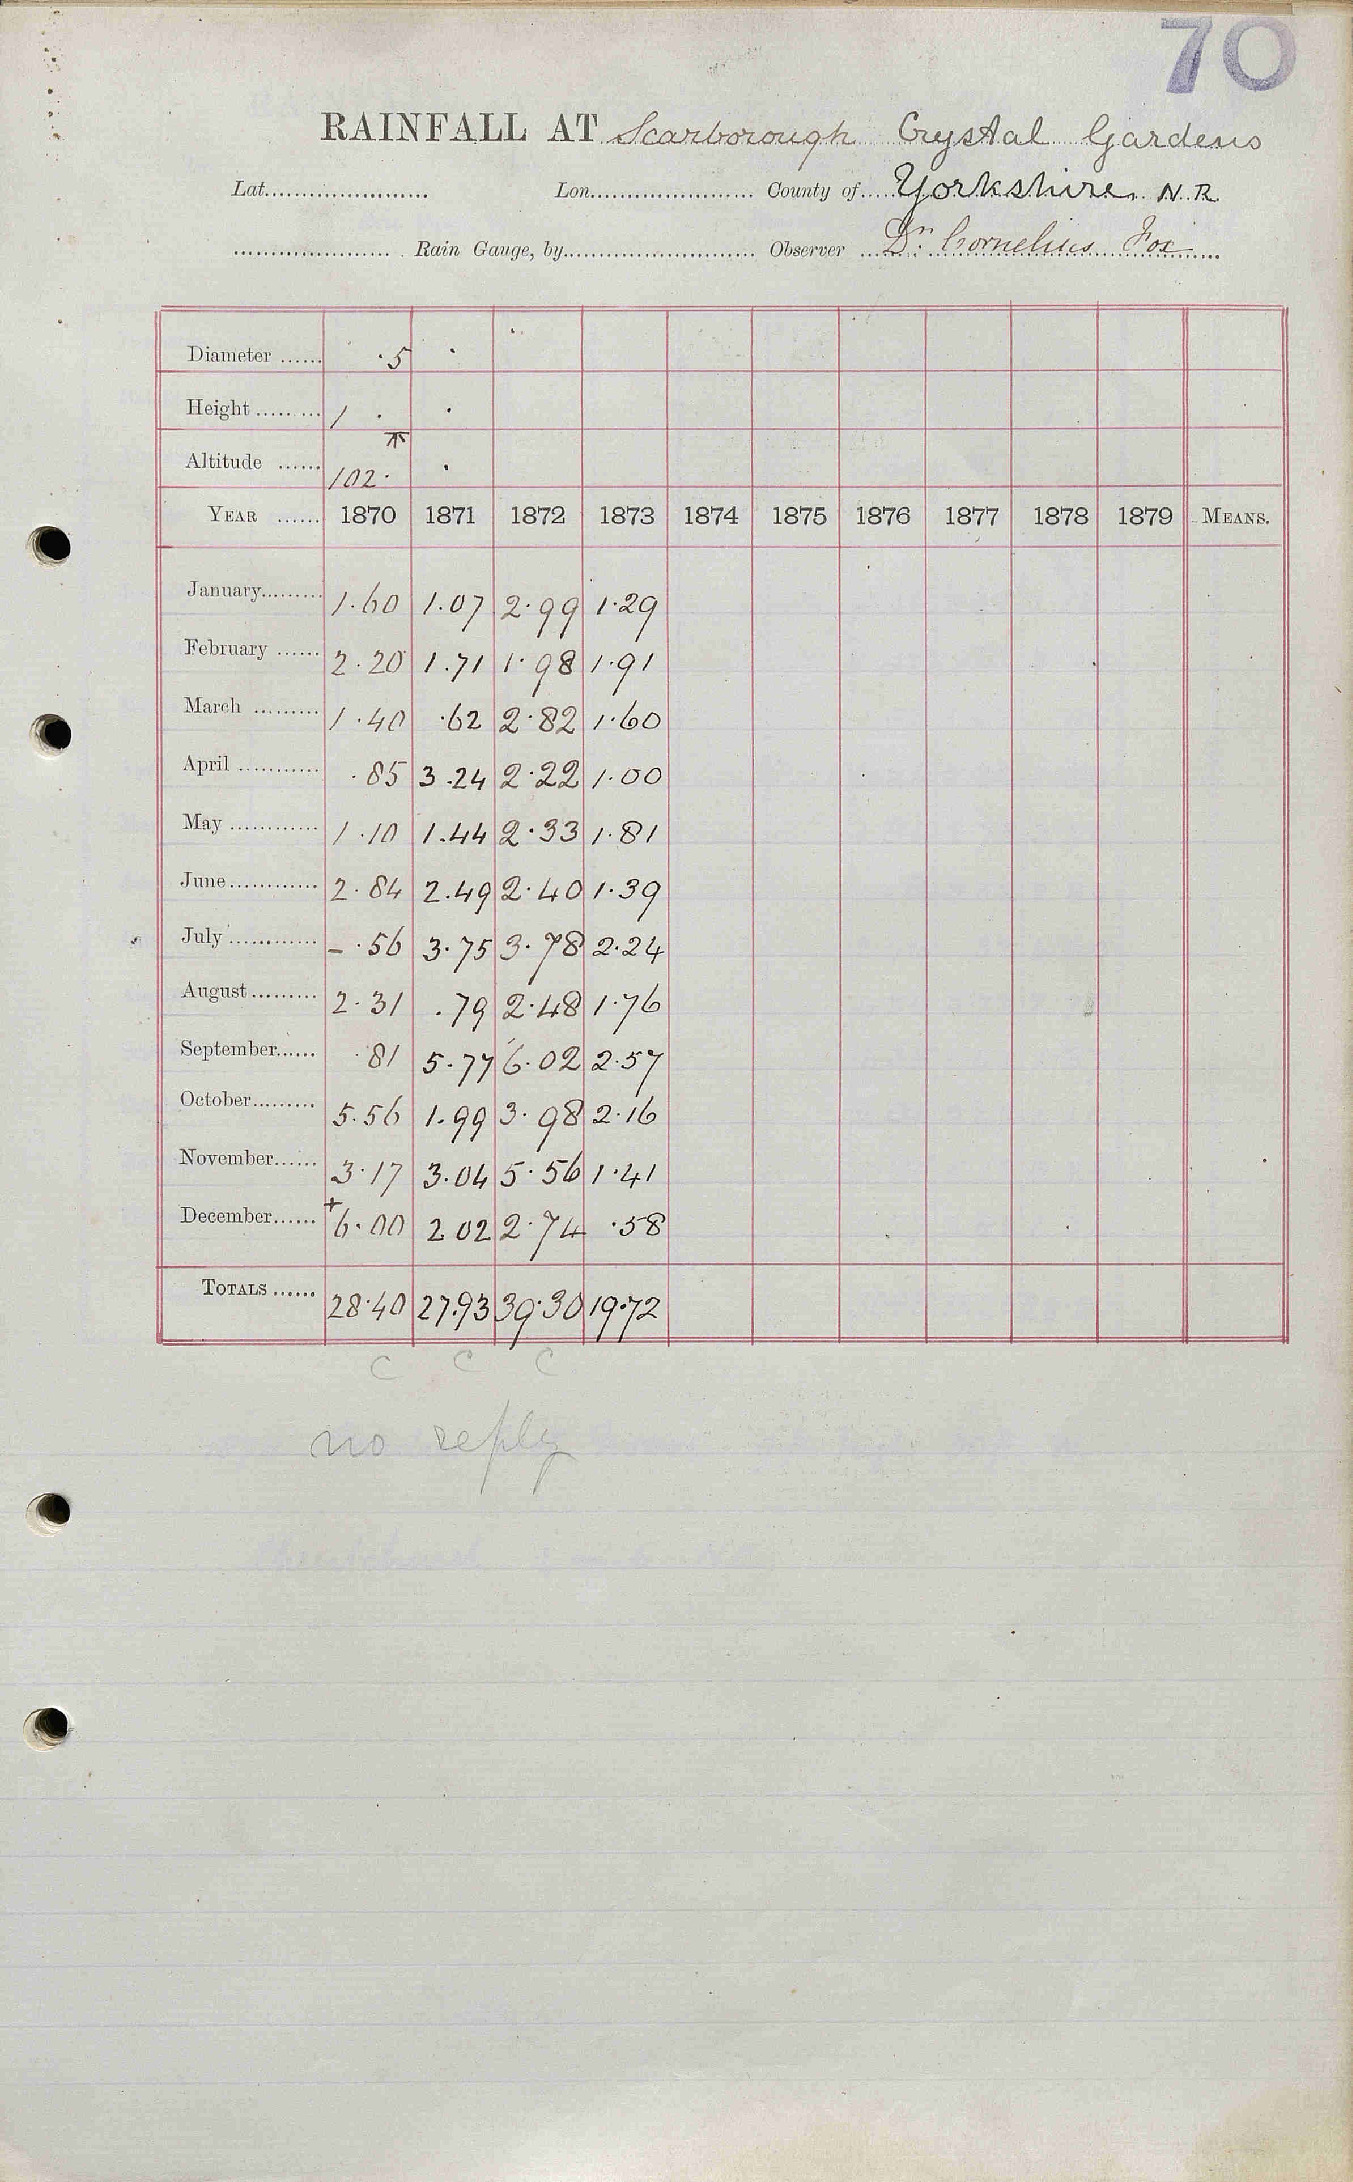 70
RAINFALL AT Scarborough Crystal Gardens
Lat...................... Lon...................... County of.... Yorkshire. N. R.
...................... Rain Gauge, by.......................... Observer Dr. Cornelius Fox
Diameter ...... ·5 ·
Height ......... 1 · ·
Altitude ...... 102· ·
YEAR ...... 1870 1871 1872 1873 1874 1875 1876 1877 1878 1879 MEANS.
January......... 1·60 1.07 2·99 1·29
February ...... 2·20 1.71 1·98 1·91
March ......... 1·40 ·62 2·82 1·60
April ........... ·85 3·24 2·22 1·00
May ............ 1·10 1.44 2·33 1·81
June............ 2·84 2.49 2·40 1·39
July ............ – ·56 3·75 3·78 2·24
August......... 2·31 .79 2·48 1·76
September...... ·81 5·77 6·02 2·57
October......... 5.56 1.99 3·98 2·16
November...... 3·17 3·04 5·56 1·41
December...... +6·00 2 02 2·74 ·58
TOTALS ...... 28·40 27.93 39·30 19·72
C C C
no reply